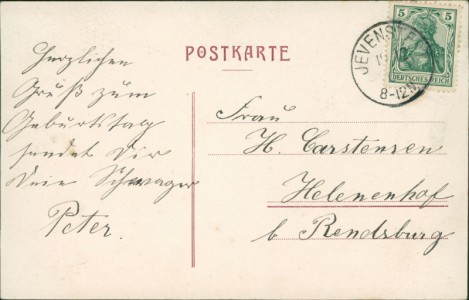 POSTKARTE
5 5
DEUTSCHES REICH
JEVENSTE
8-12N
Herzlichen
Gruß zum
Geburtstag
sendet Dir
Dein Schwager
Peter.
Frau
H. Carstensen
Helenenhof
b Rendsburg